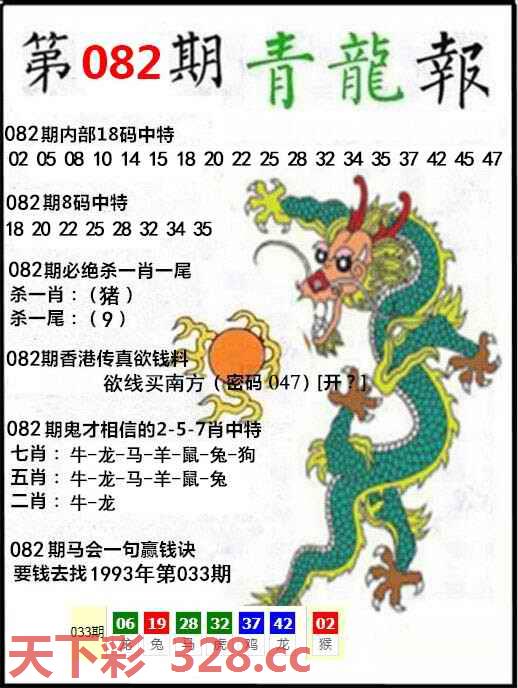 第082期青龍報
082期内部18码中特
02 05 08 10 14 15 18 20 22 25 28 32 34 35 37 42 45 47
082期8码中特
18 20 22 25 28 32 34 35
082期必绝杀一肖一尾
杀一肖：（猪）
杀一尾：（9）
082期香港传真欲钱料
欲线买南方（密码 047）[开？]
082期鬼才相信的2-5-7肖中特
七肖：牛-龙-马-羊-鼠-兔-狗
五肖：牛-龙-马-羊-鼠-兔
二肖：牛-龙
082期马会一句赢钱诀
要钱去找1993年第033期
033期 06 19 28 32 37 42 02
龙 兔 马 虎 鸡 龙 猴
天下彩 328.cc